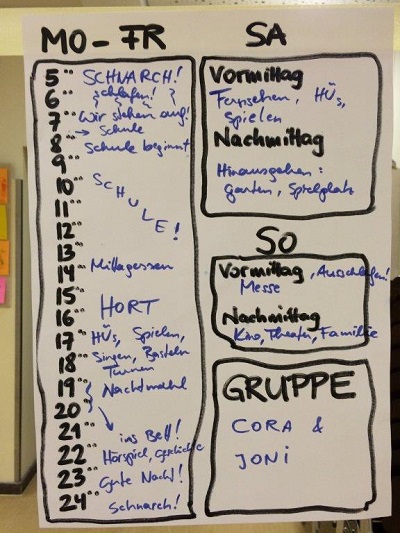 MO-FR
5°° SCHNARCH!
6°° schlafen!
7°° Wir stehen auf!
→ Schule
8°° Schule beginnt
9°°
10°° SCHULE!
11°°
12°°
13°°
14°° Mittagessen
15°°
16°° HORT
17°° HÜs, Spielen,
18°° Singen, Basteln
Turnen
19°° Nachtmahl
20°°
21°° ins Bett!
22°° Hörspiel, Geschichte
23°° Gute Nacht!
24°° Schnarch!
SA
Vormittag
Fernsehen, HÜs,
Spielen
Nachmittag
Hinausgehen:
Garten, Spielplatz
SO
Vormittag, Ausschlafen!
Messe
Nachmittag
Kino, Theater, Familie
GRUPPE
CORA &
JONI